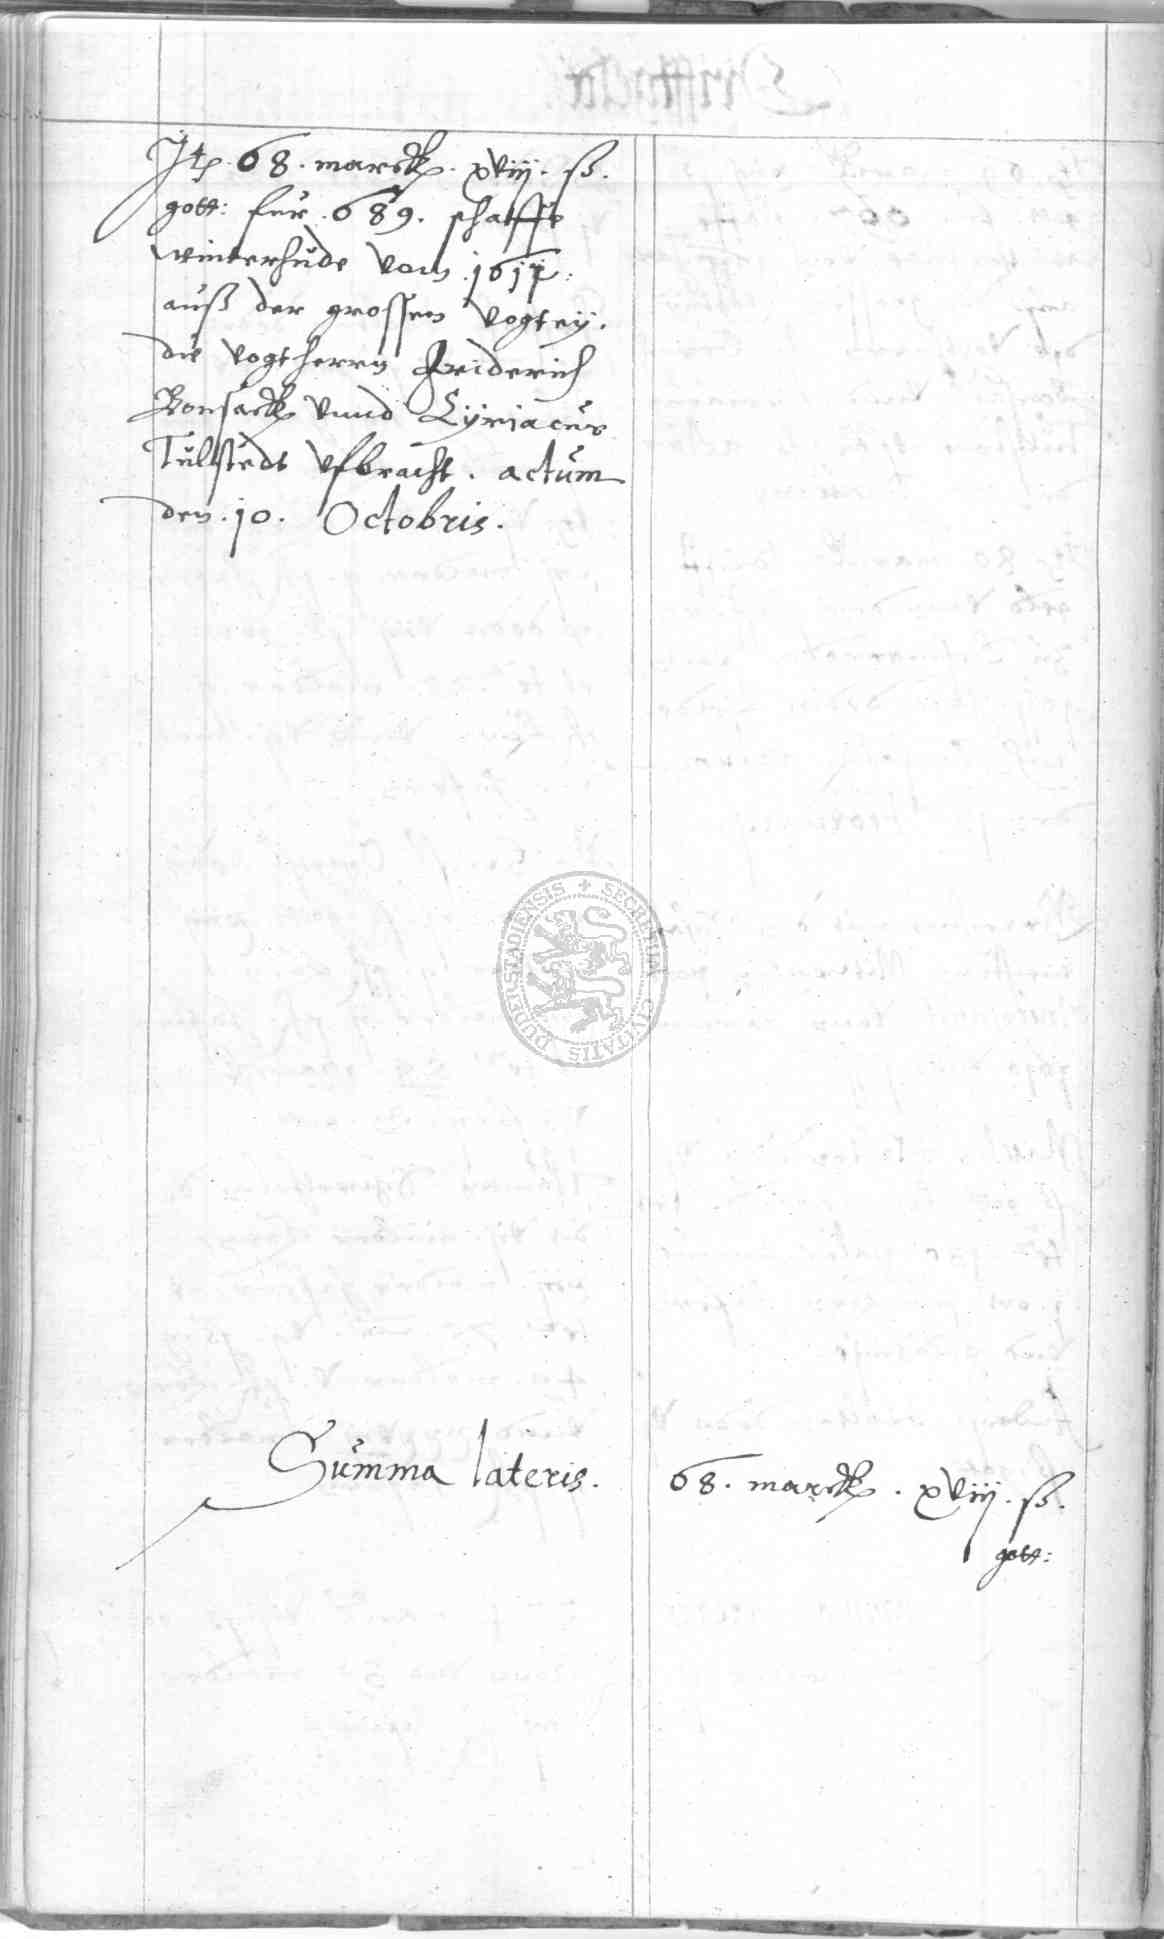 Jt. 68. marck. xviij. ß.
gott: für. 689. schaffs
winterhüde vom. 1617.
auß der grossen Vogtey.
die Vogtherrn Friderich
Bonsack vnnd Cÿriacus
Tülstedt vfbracht. actum
den. 10. Octobris.
SECRETUM CIVITATIS DUDERSTADIENSIS
Summa lateris. 68. marck. xviij. ß.
gott: